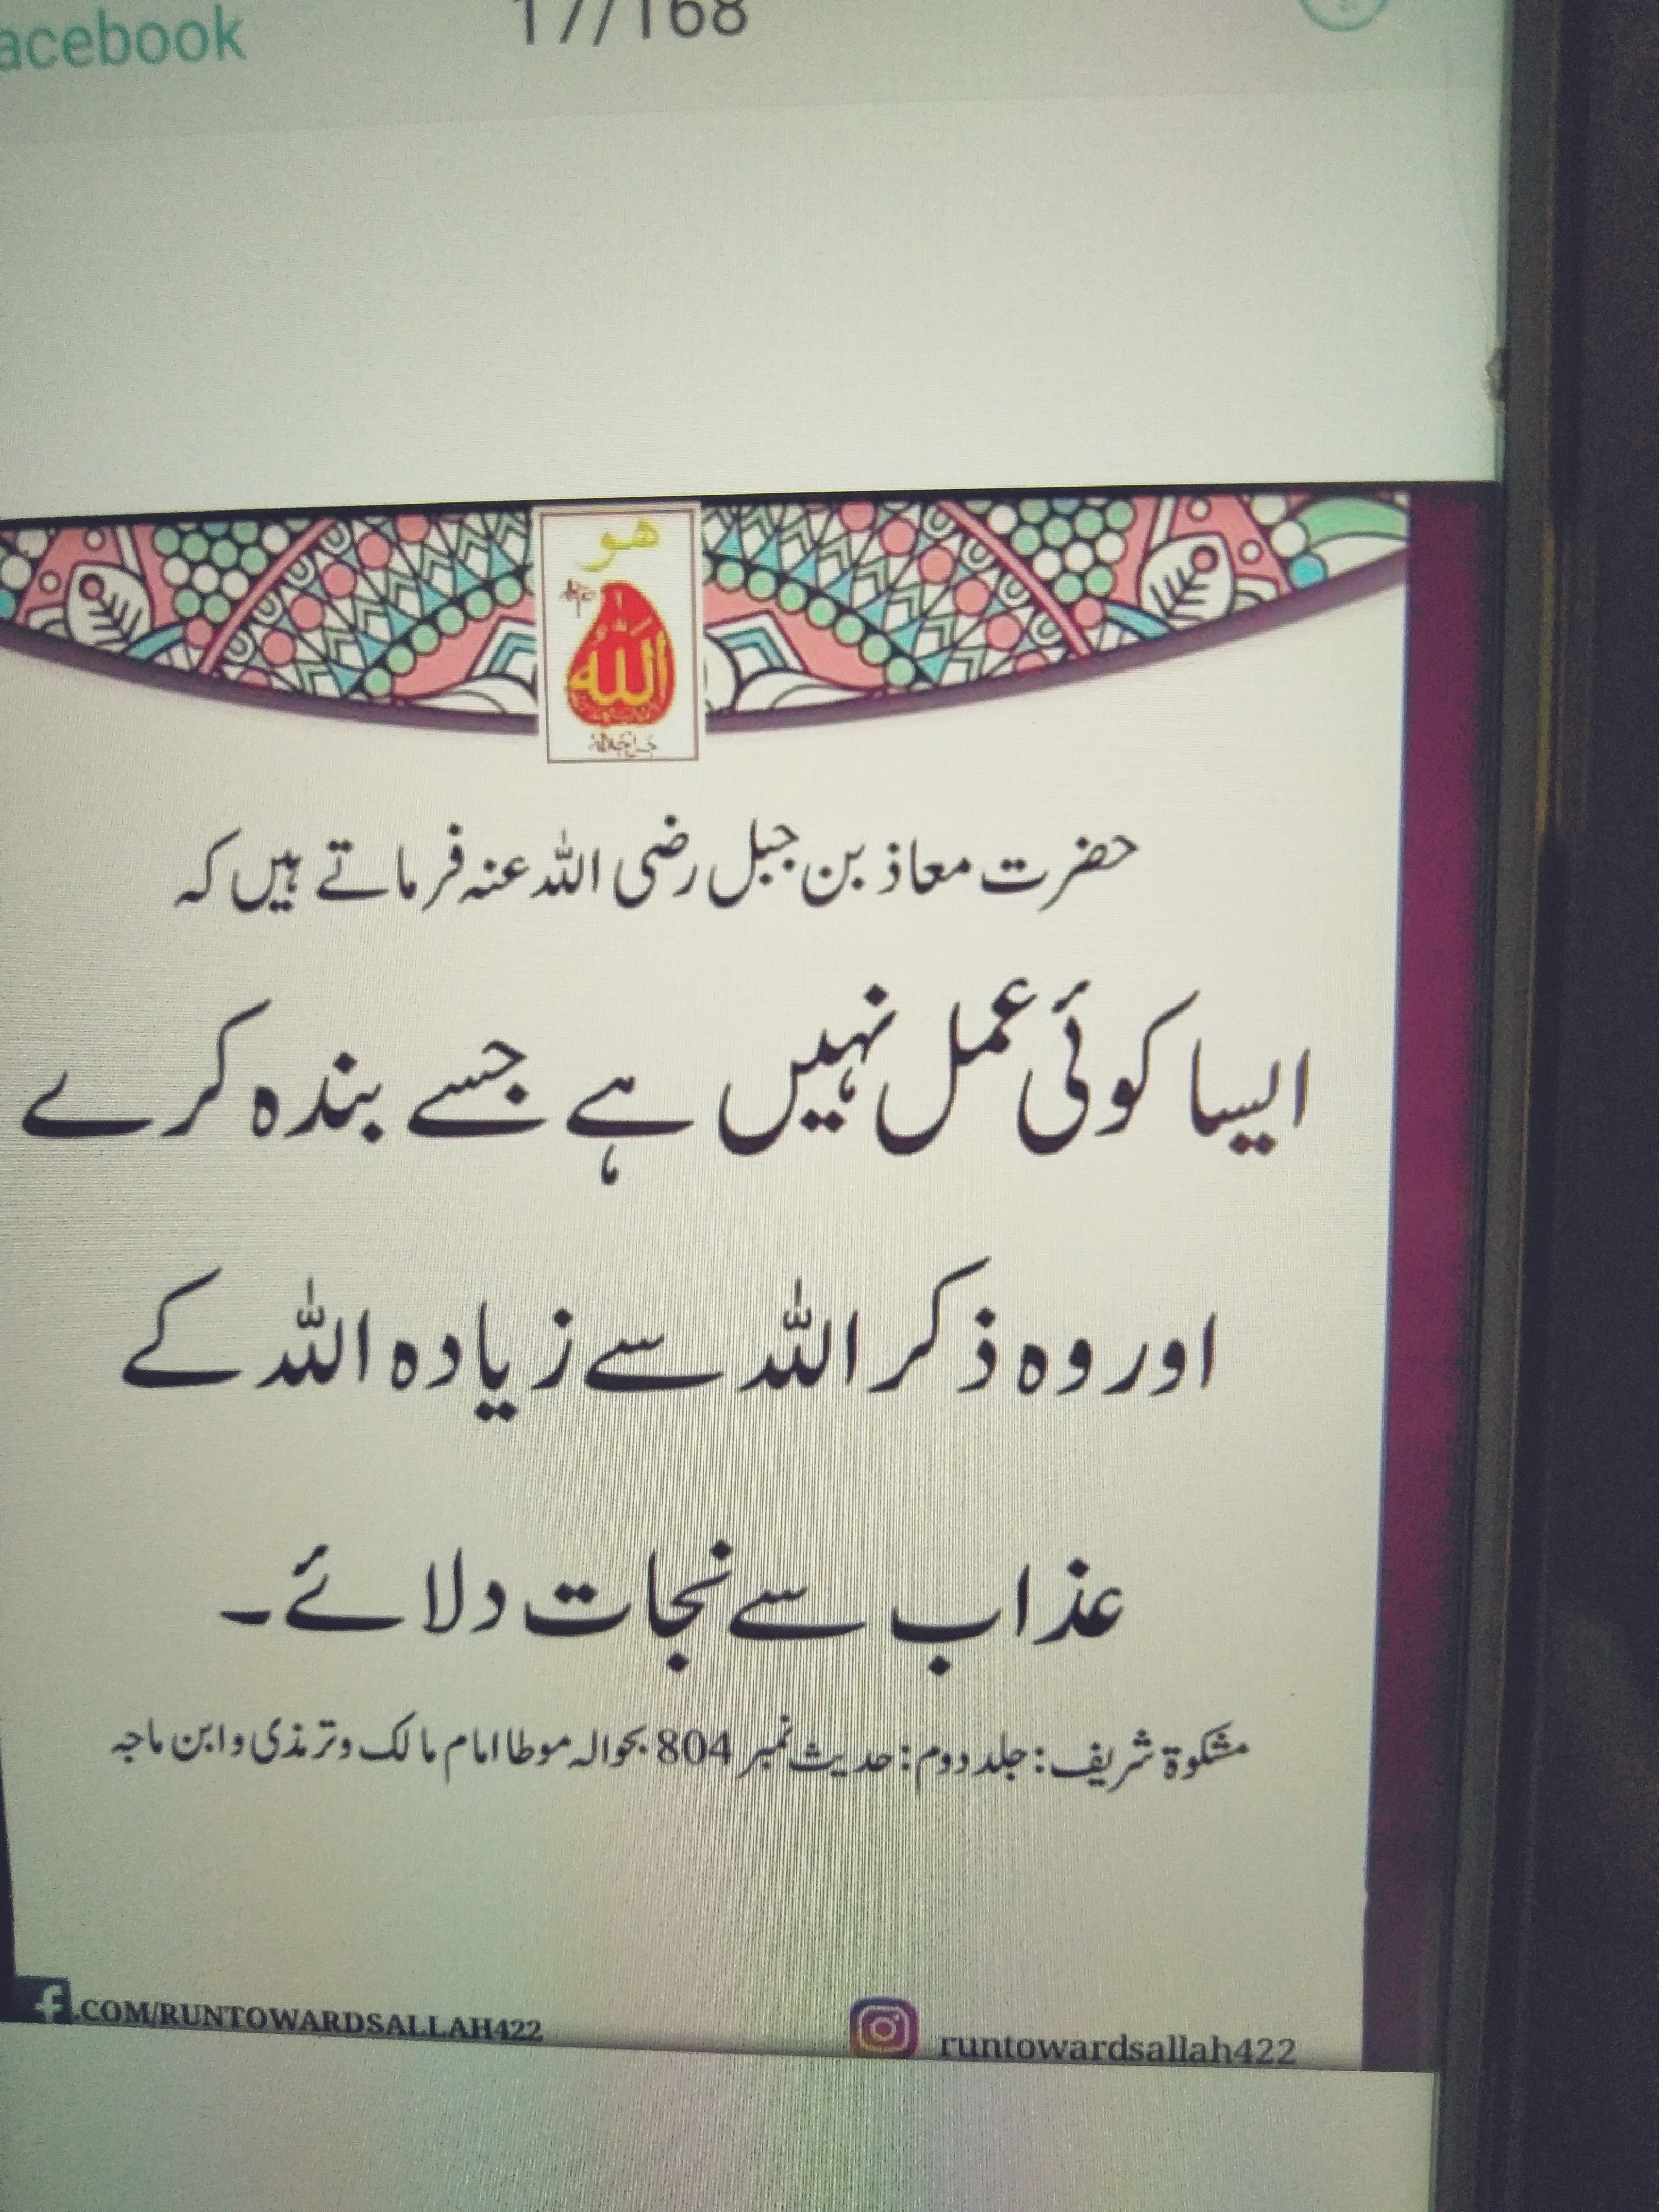 acebook
17/168
ھو
اللہ
حضرت معاذ بن جبل رضی اللہ عنہ فرماتے ہیں کہ
ایسا کوئی عمل نہیں ہے جسے بندہ کرے
اور وہ ذکر اللہ سے زیادہ اللہ کے
عذاب سے نجات دلائے۔
مشکوۃ شریف: جلد دوم: حدیث نمبر 804 بحوالہ موطا امام مالک و ترمذی و ابن ماجہ
.COM/RUNTOWARDSALLAH422
runtowardsallah422